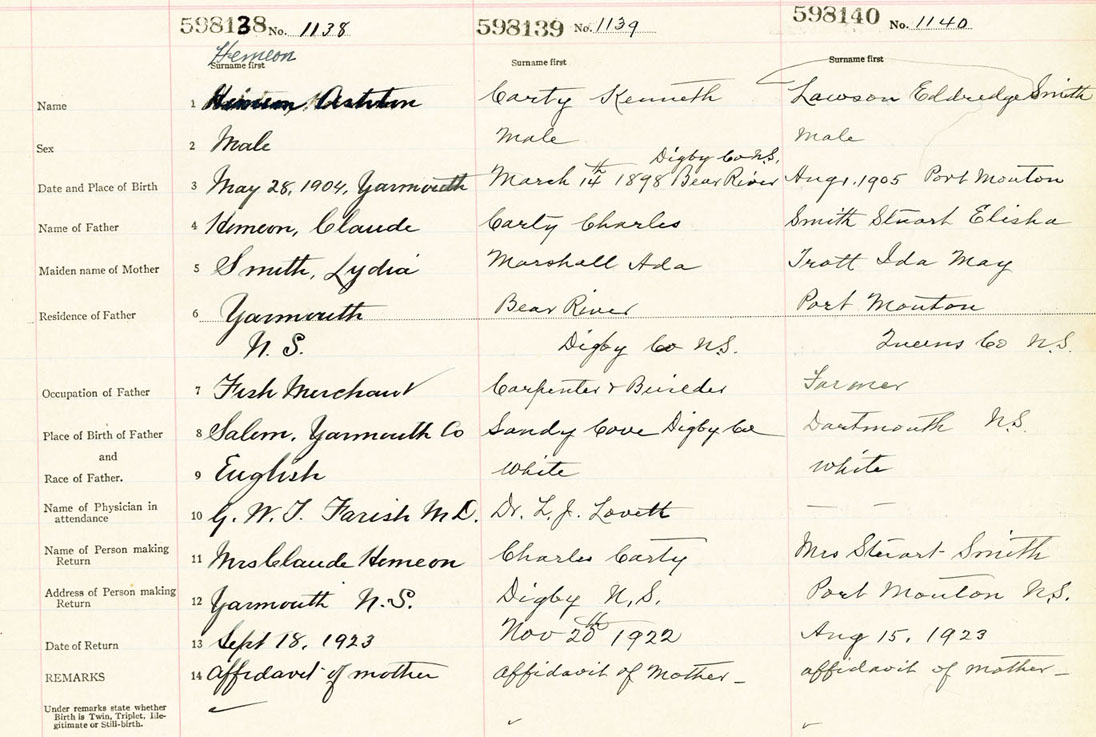 598138 No. 1138
598139 No. 1139
598140 No. 1140
Hemeon
Surname first
Surname first
Surname first
Name 1 Hemeon, Ashton Carty Kenneth Lawson Eldredge Smith
Sex 2 Male Male Male
Digby Co N.S.
Date and Place of Birth 3 May 28, 1904, Yarmouth March 14th 1898 Bear River Aug 1, 1905 Port Mouton
Name of Father 4 Hemeon, Claude Carty Charles Smith Stuart Elisha
Maiden name of Mother 5 Smith, Lydia Marshall Ada Trott Ida May
Residence of Father 6 Yarmouth Bear River Port Mouton
N. S. Digby Co N.S. Queens Co N.S.
Occupation of Father 7 Fish Merchant Carpenter & Builder Farmer
Place of Birth of Father 8 Salem, Yarmouth Co Sandy Cove Digby Co Dartmouth N.S.
and
Race of Father. 9 English White White
Name of Physician in
attendance 10 G. W. T. Farish M.D. Dr. L. J. Lovett — —
Name of Person making
Return 11 Mrs Claude Hemeon Charles Carty Mrs Stuart Smith
Address of Person making
Return 12 Yarmouth N.S. Digby N.S. Port Mouton N.S.
Date of Return 13 Sept 18, 1923 Nov 20th 1922 Aug 15, 1923
REMARKS 14 Affidavit of mother Affidavit of Mother — Affidavit of Mother —
Under remarks state whether
Birth is Twin, Triplet, Ille-
gitimate or Still-birth.